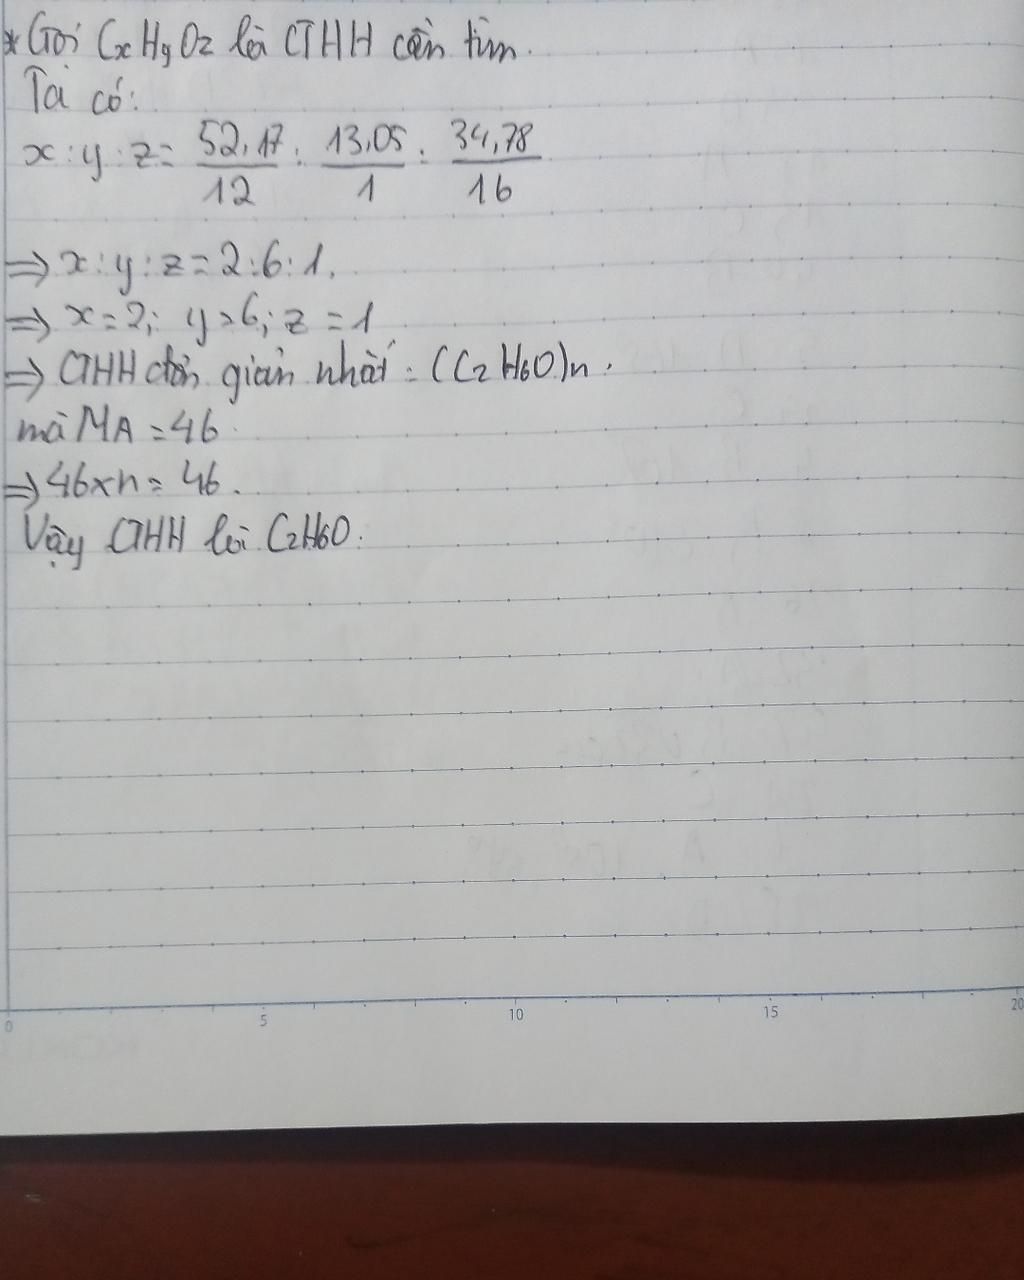 * Gọi CxHyOz là CTHH cần tìm.
Ta có:
x : y : z = 52,17/12 : 13,05/1 : 34,78/16
=> x : y : z = 2 : 6 : 1.
=> x = 2; y = 6; z = 1
=> CTHH đơn giản nhất : (C2H6O)n.
mà MA = 46
=> 46xn = 46.
Vậy CTHH là C2H6O.
0 5 10 15 20